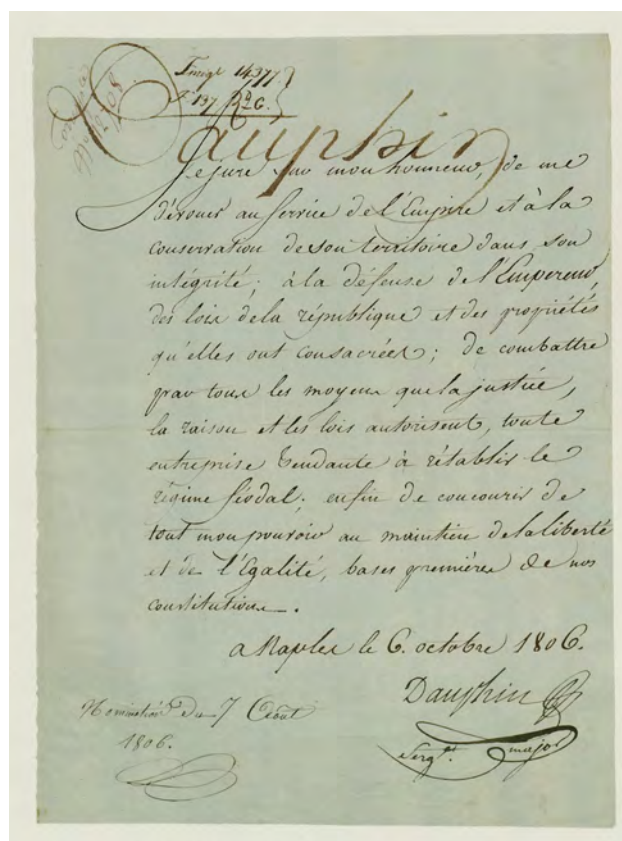 Enregt 14377
Dauphin
Je jure sur mon honneur, de me
dévouer au Service de l'Empire et à la
conservation de son territoire dans son
intégrité; à la défense de l'Empereur,
des lois de la république et des propriétés
qu'elles ont consacrées; de combattre
par tous les moyens que la justice,
la raison et les lois autorisent, toute
entreprise tendante à rétablir le
régime féodal; enfin de concourir de
tout mon pouvoir au maintien de la liberté
et de l'Egalité, bases premières de nos
constitutions.
a Naples le 6. octobre 1806.
Dauphin
Sergt. major
Nomination du 7 Août
1806.